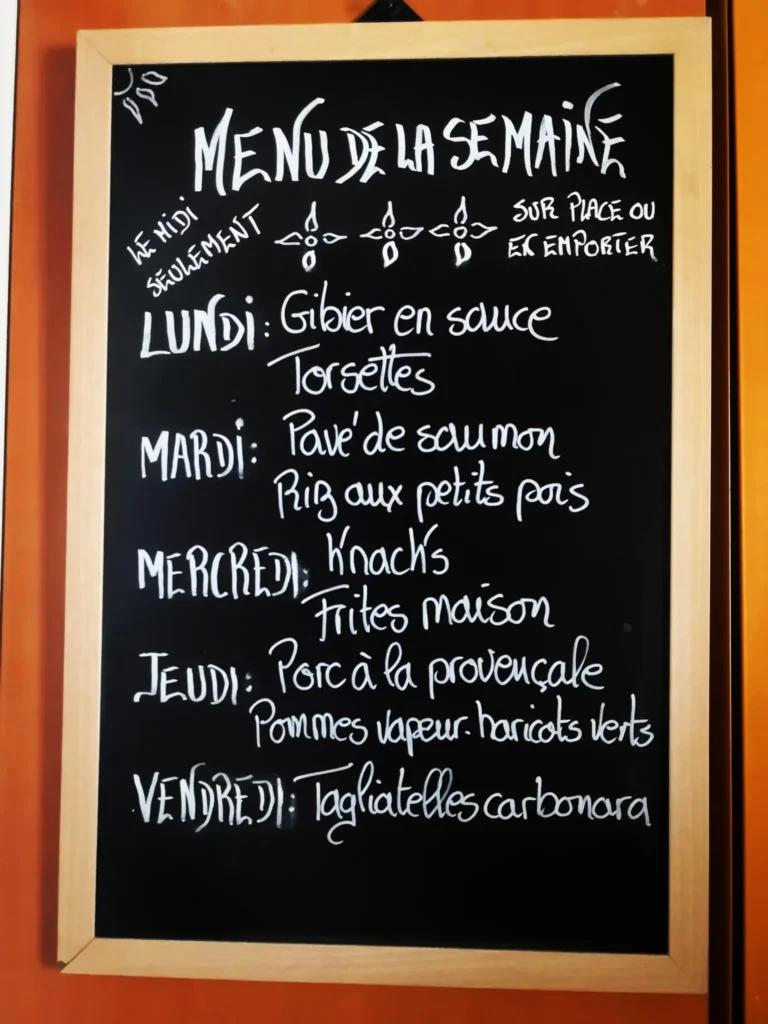 MENU DE LA SEMAINE
LE MIDI
SEULEMENT
SUR PLACE OU
EN EMPORTER
LUNDI: Gibier en sauce
Torsettes
MARDI: Pavé de saumon
Riz aux petits pois
MERCREDI: Knack's
Frites maison
JEUDI: Porc à la provençale
Pommes vapeur. haricots verts
VENDREDI: Tagliatelles carbonara